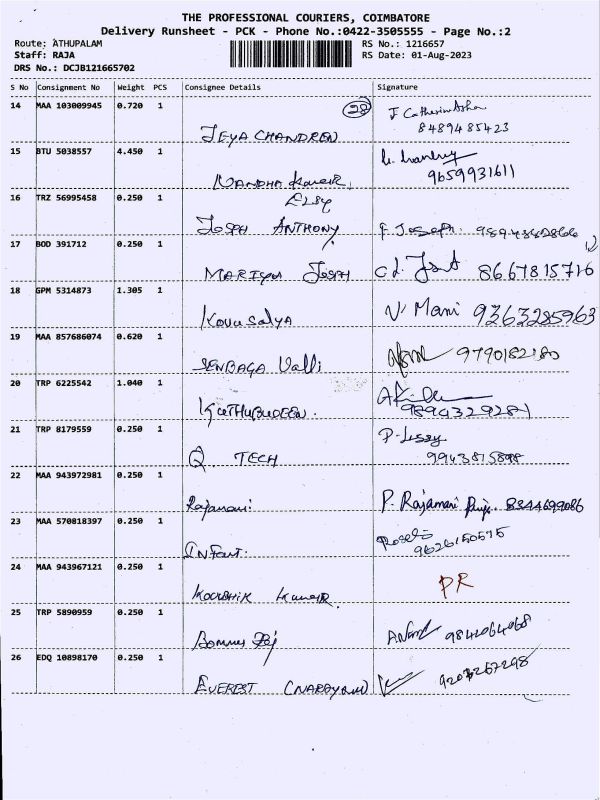 THE PROFESSIONAL COURIERS, COIMBATORE
Delivery Runsheet - PCK - Phone No.:0422-3505555 - Page No.:2
Route: ATHUPALAM
RS No.: 1216657
Staff: RAJA
RS Date: 01-Aug-2023
DRS No.: DCJB121665702
S No Consignment No Weight PCS Consignee Details Signature
14 MAA 103009945 0.720 1 28
JEYA CHANDREN
8489485423
15 BTU 5038557 4.450 1
NANDHA Kumar 9659931611
16 TRZ 56995458 0.250 1
JOSPH ANTHONY
17 BOD 391712 0.250 1
JOSPH 8667815716
18 GPM 5314873 1.305 1
KovuSalya V Mani 9363285963
19 MAA 857686074 0.620 1
SENBAGA Valli 9790182180
20 TRP 6225542 1.040 1
KUTHUBUDEEN. 9894329281
21 TRP 8179559 0.250 1
Q TECH 9943815898
22 MAA 943972981 0.250 1
Rajamani P. Rajamani 8344699086
23 MAA 570818397 0.250 1
INFant. 9626150575
24 MAA 943967121 0.250 1
KOUSHIK Kumar. PR
25 TRP 5890959 0.250 1
9842064068
26 EDQ 10898170 0.250 1
EVEREST